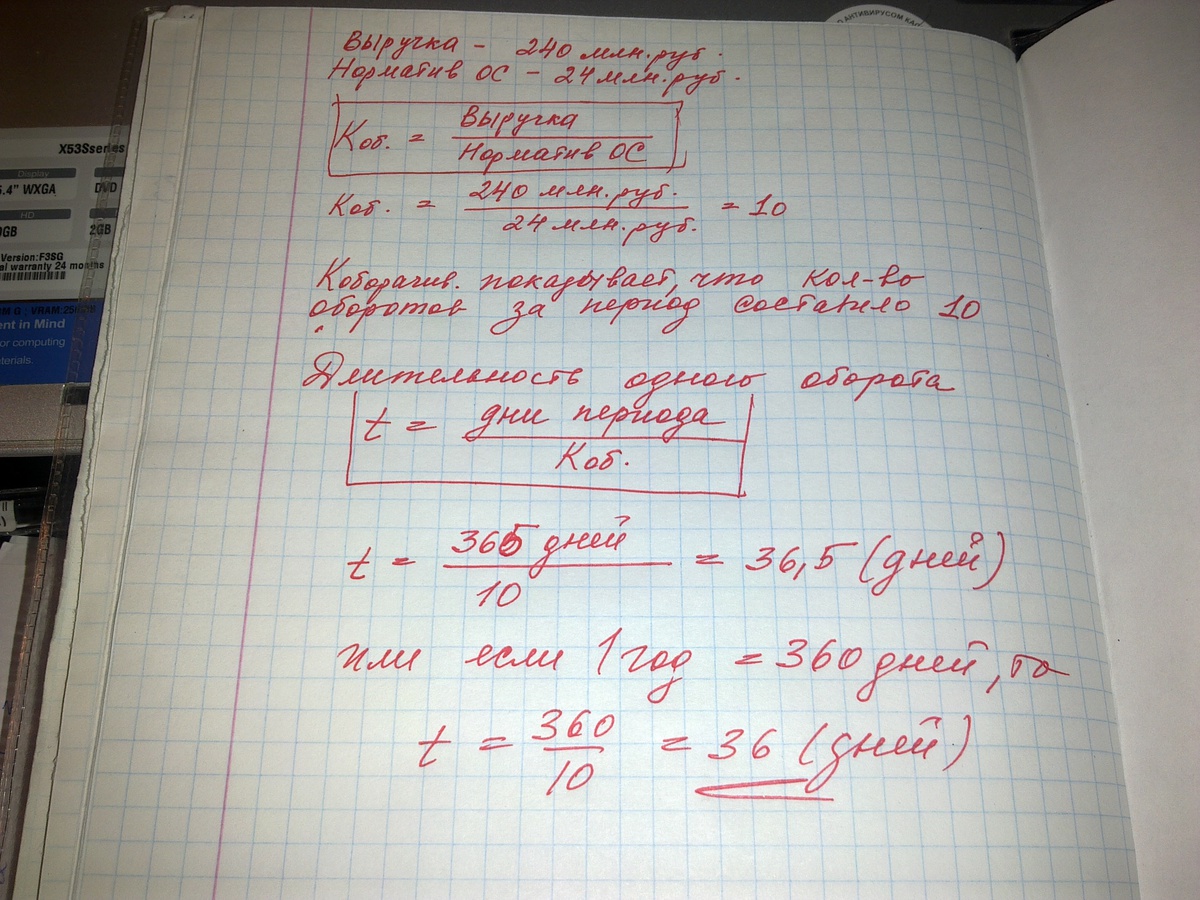 О АНТИВИРУСОМ КАС
Выручка - 240 млн.руб.
Норматив ОС - 24 млн.руб.
Коб. = Выручка
Норматив ОС
Коб. = 240 млн.руб. = 10
24 млн.руб.
Коборачив. показывает, что кол-во
оборотов за период составило 10
Длительность одного оборота
t = дни периода
Коб.
t = 365 дней = 36,5 (дней)
10
или если 1 год = 360 дней, то
t = 360 = 36 (дней)
10
X53Sseries
Display
5.4" WXGA
DVD
HD
0GB
2GB
Version:F3SG
al warranty 24 months
ent in Mind
or computing
terials.